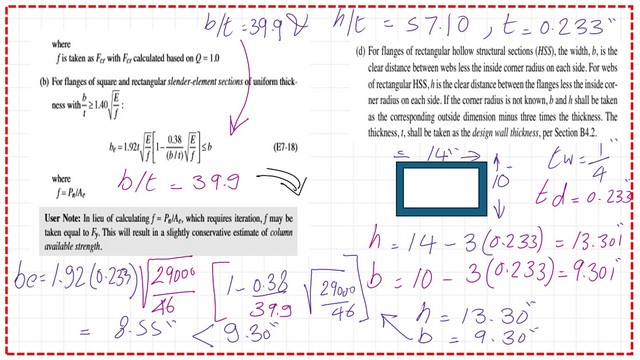 b/t = 39.9 & h/t = 57.10 , t = 0.233"
where
f is taken as Fcr with Fcr calculated based on Q = 1.0
(b) For flanges of square and rectangular slender-element sections of uniform thick-
ness with b/t ≥ 1.40 √(E/f) :
be = 1.92t √(E/f) [1 − 0.38/(b/t) √(E/f)] ≤ b (E7-18)
where
f = Pn/Ae
b/t = 39.9
User Note: In lieu of calculating f = Pn/Ae, which requires iteration, f may be
taken equal to Fy. This will result in a slightly conservative estimate of column
available strength.
(d) For flanges of rectangular hollow structural sections (HSS), the width, b, is the
clear distance between webs less the inside corner radius on each side. For webs
of rectangular HSS, h is the clear distance between the flanges less the inside cor-
ner radius on each side. If the corner radius is not known, b and h shall be taken
as the corresponding outside dimension minus three times the thickness. The
thickness, t, shall be taken as the design wall thickness, per Section B4.2.
14"
10"
tw = 1/4"
td = 0.233
h = 14 - 3(0.233) = 13.301
b = 10 - 3(0.233) = 9.301
be = 1.92 (0.233) √(29000/46) [1 - 0.38/39.9 √(29000/46)]
= 8.55" < 9.30"
h = 13.30"
b = 9.30"